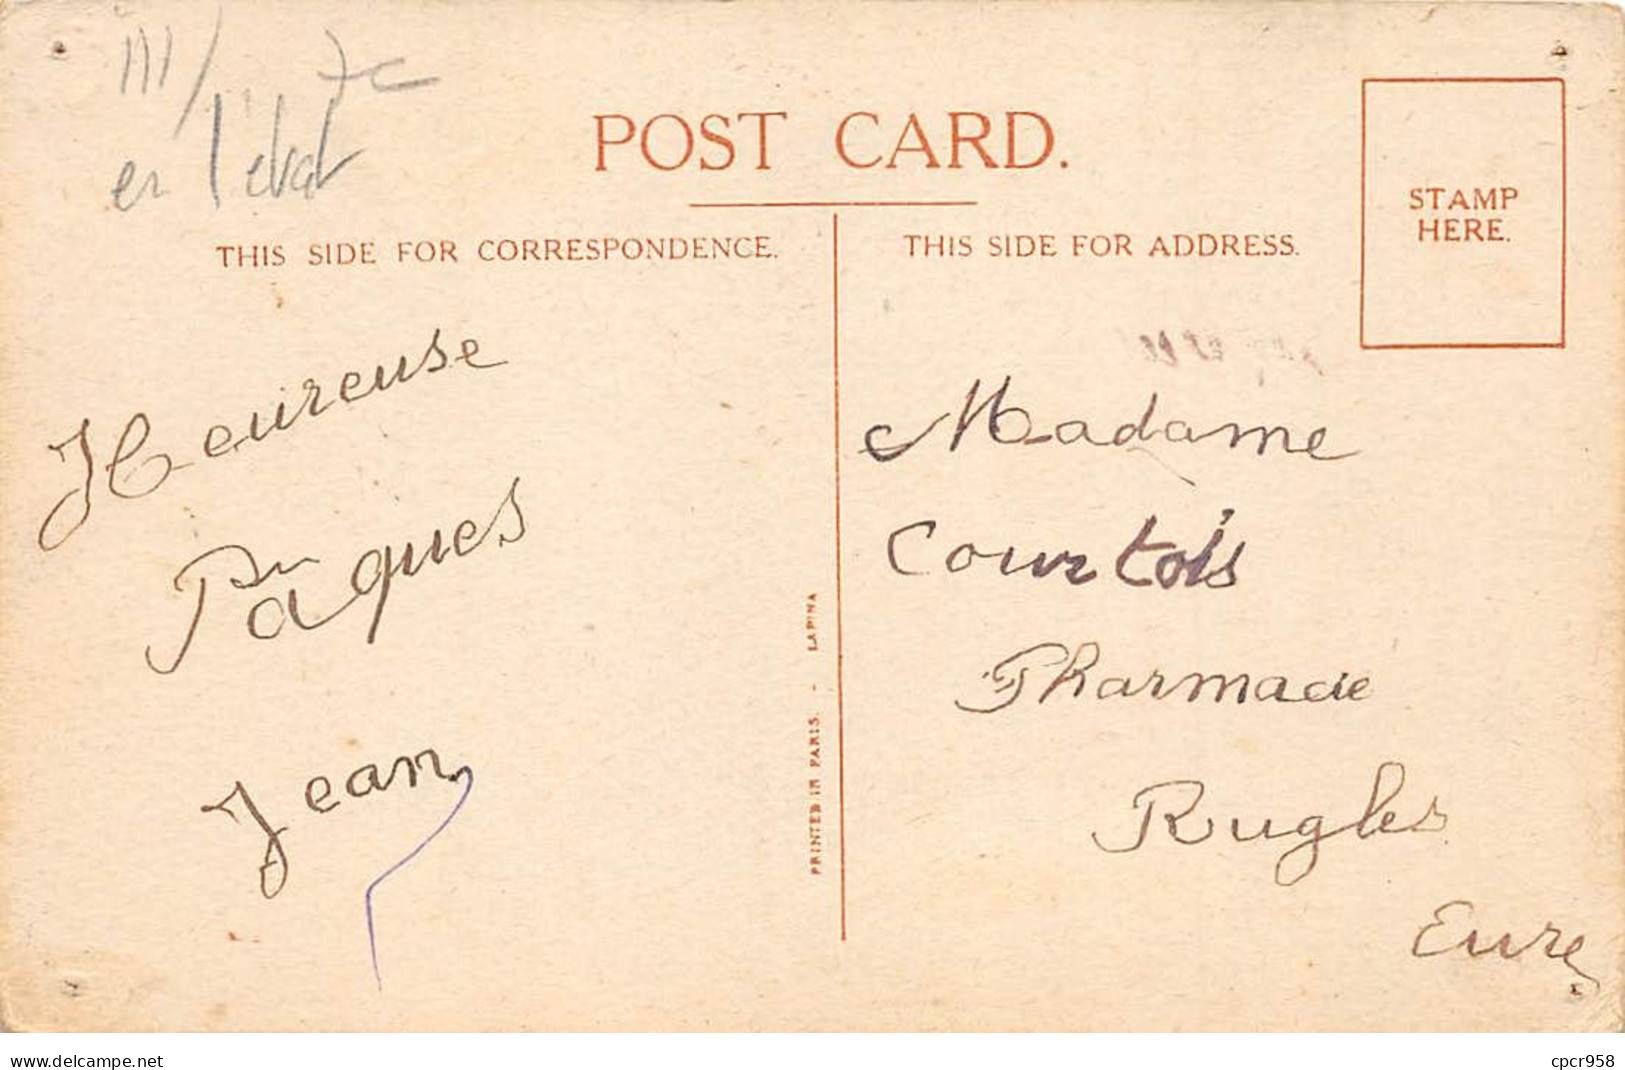 III/ 7c
en l'état
POST CARD.
THIS SIDE FOR CORRESPONDENCE.
THIS SIDE FOR ADDRESS.
STAMP
HERE.
Heureuse
Pâques
Jean
PRINTED IN PARIS. - LAPINA
Madame
Courtois
Pharmacie
Rugles
Eure
www.delcampe.net
cpcr958